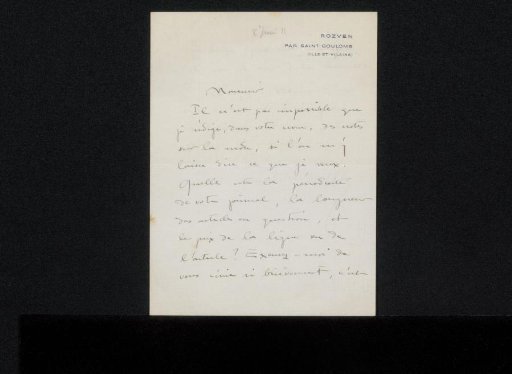 ROZVEN
PAR SAINT-COULOMB
(ILLE-ET-VILAINE)
Monsieur
Il n'est pas impossible que
je rédige, dans votre revue, des notes
sur la mode, si l'on m'y
laisse dire ce que je veux.
Quelle est la périodicité
de votre journal, la longueur
des articles en question, et
le prix de la ligne ou de
l'article? Excusez-moi de
vous écrire si brièvement, c'est